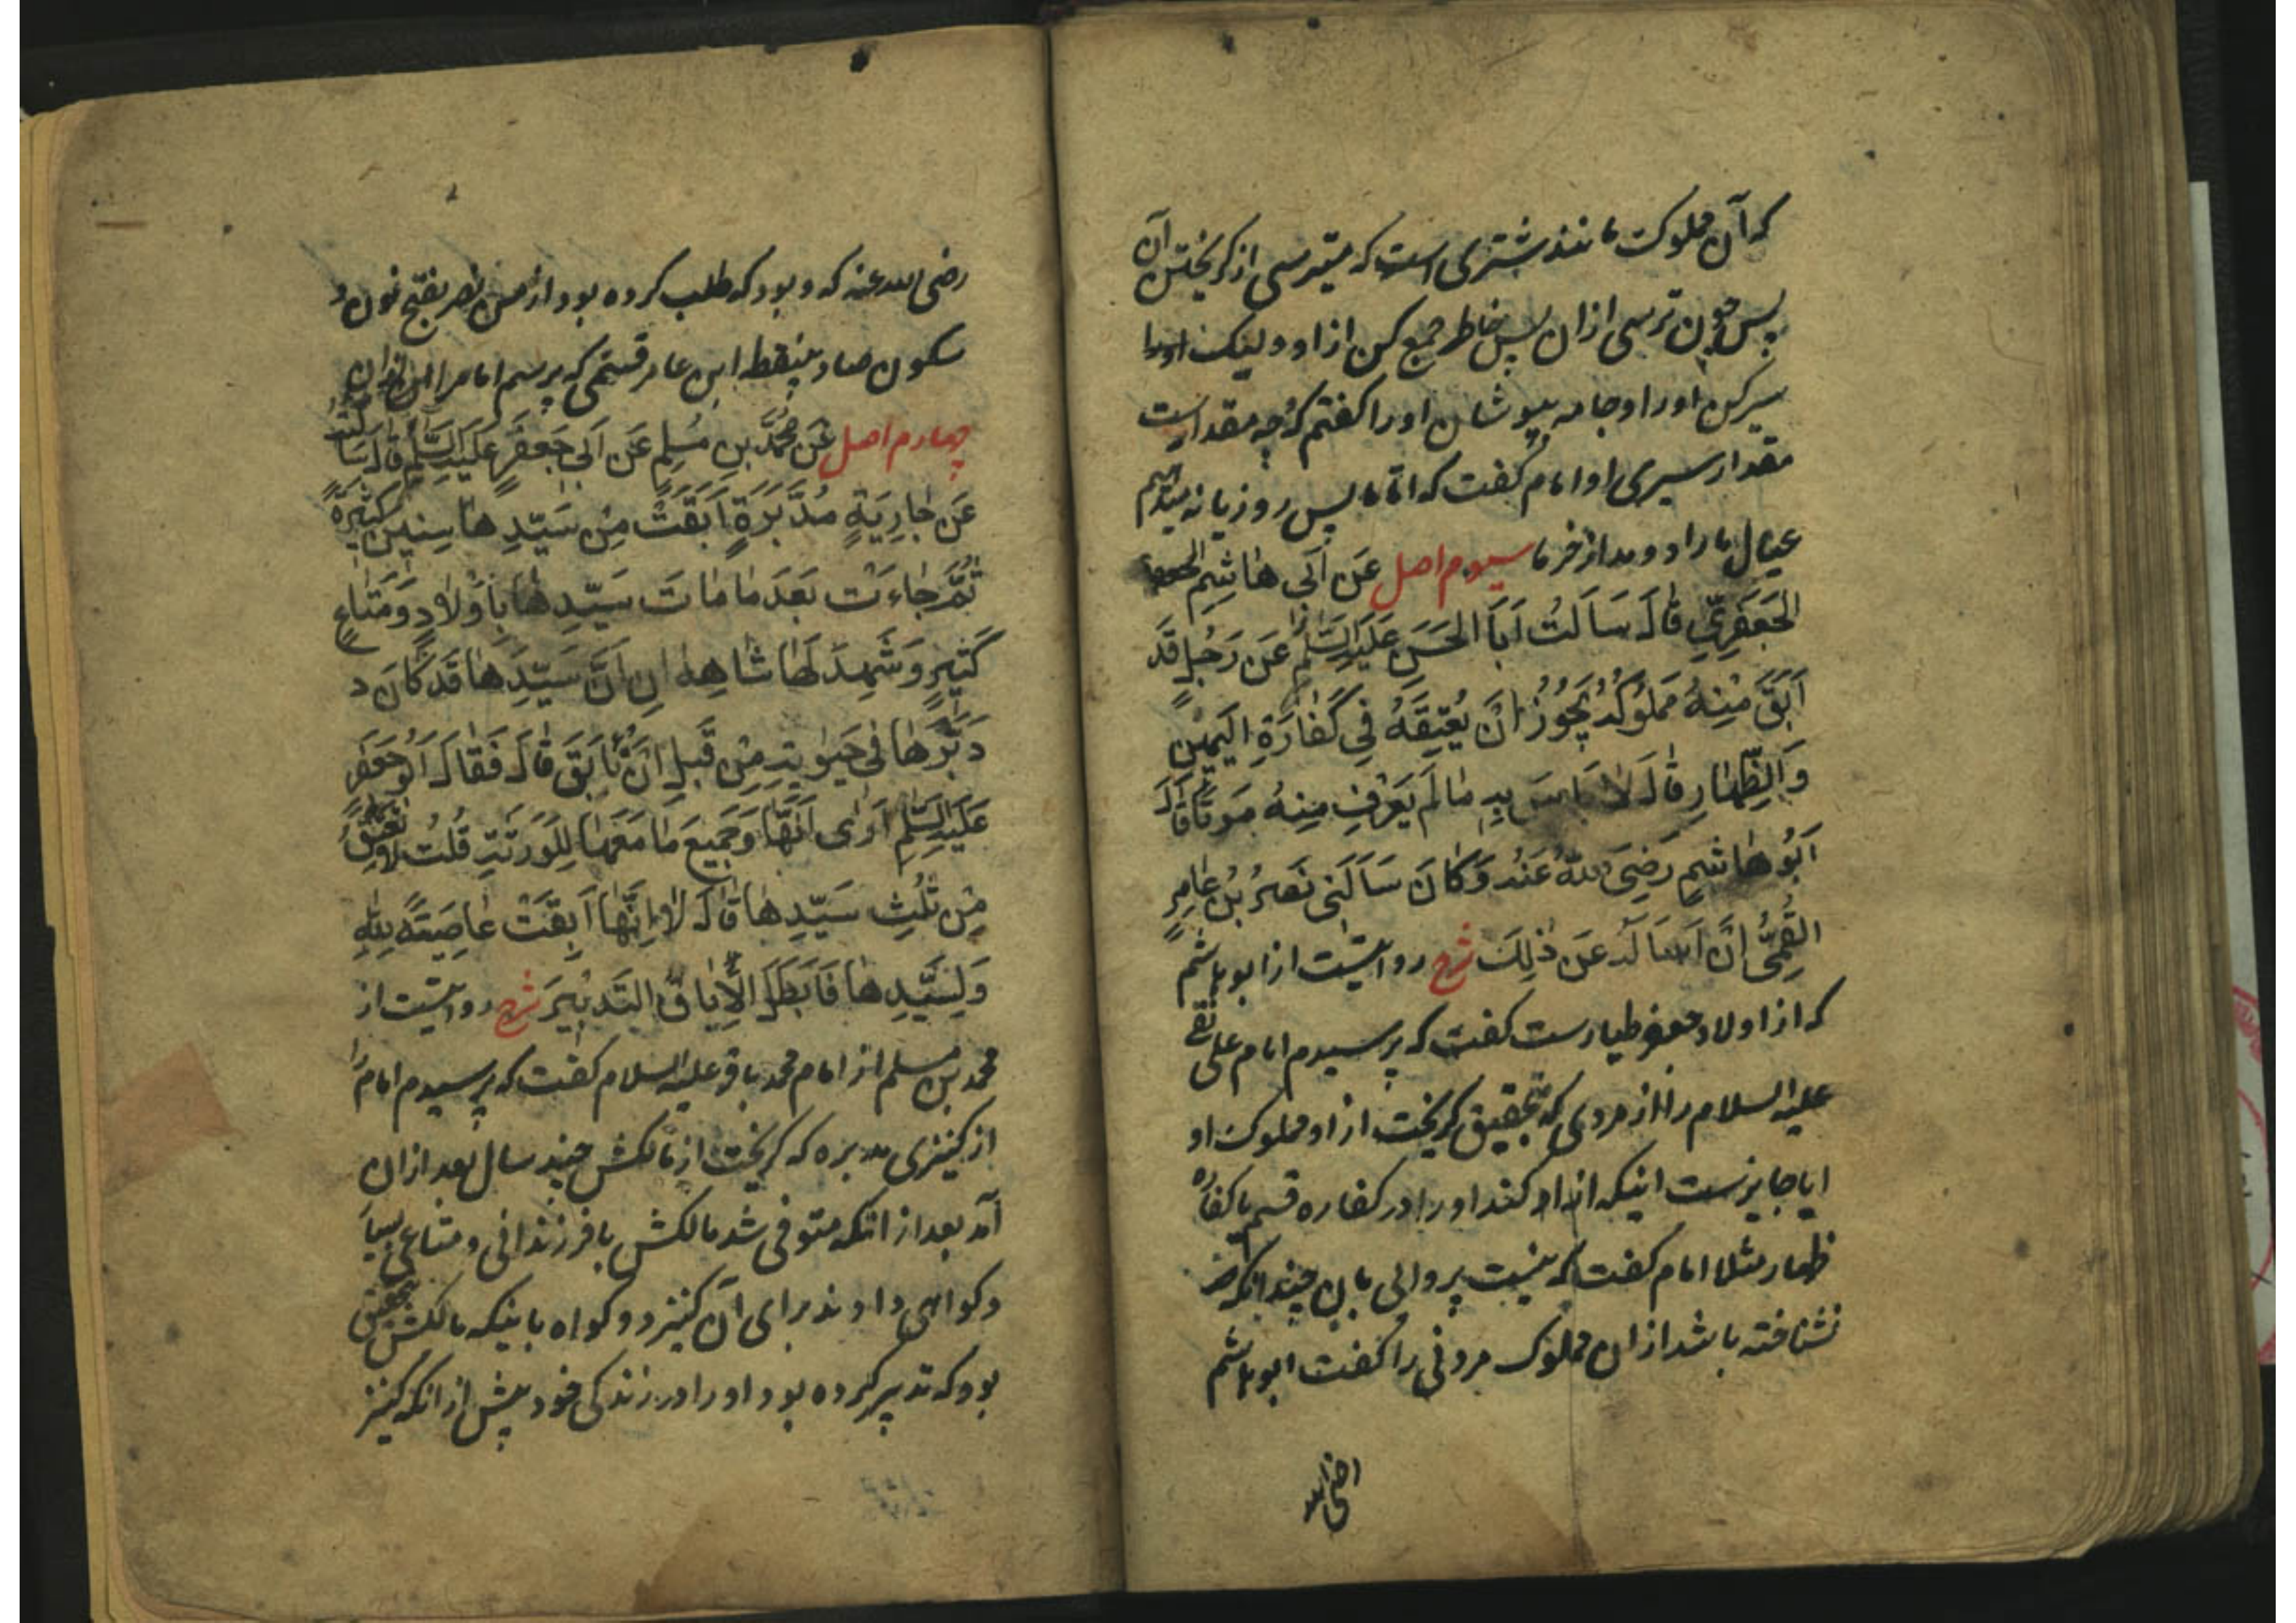 که آن مملوکت مانند شتری است که میترسی از کریختن آن
پس چون ترسی از ان پس خاطر جمع کن از او و لیک
سیر کن او را و جامه بپوشان او را کفتم که چه مقدارست
مقدار سیری او امام کفت که اما ما پس روزیانه میدهیم
عیال ما را دو مد از خرما سیوم اصل عَن اَبی هاشِمِ
الجَعفَرِیِّ قالَ سَاَلتُ اَبَا الحَسَنِ عَلَیهِ السَّلامُ عَن رَجُلٍ قَد
اَبَقَ مِنهُ مَملُوکُهُ یَجُوزُ اَن یُعتِقَهُ فی کَفّارَةِ الیَمینِ
وَالظِّهارِ قالَ لا بَاسَ بِهِ ما لَم یَعرِف مِنهُ مَوتًا قالَ
اَبُو هاشِمٍ رَضِیَ اللهُ عَنهُ وَکانَ سَاَلَنی نَصرُ بنُ عامِرٍ
القُمِّیُّ اَن اَساَلَهُ عَن ذٰلِکَ شرح روایتست از ابو هاشم
که از اولاد جعفر طیارست کفت که پرسیدم امام علی نقی
علیه السلام را از مردی که بتحقیق کریخت از او مملوک او
ایا جایزست اینکه ازاد کند او را در کفاره قسم یا کفاره
ظهار مثلا امام کفت که نیست پروائی بان چندانکه
نشناخته باشد از ان مملوک مردنی را کفت ابو هاشم
رضی الله
رضی الله عنه که و بود که طلب کرده بود از من نصر بفتح نون و
سکون صاد بینقطه ابن عامر قمی که پرسم امام را از ان
چهارم اصل عَن مُحَمَّدِ بنِ مُسلِمٍ عَن اَبی جَعفَرٍ عَلَیهِ السَّلامُ قالَ سَاَلتُهُ
عَن جارِیَةٍ مُدَبَّرَةٍ اَبَقَت مِن سَیِّدِها سِنینَ کَثیرَةً
ثُمَّ جاءَت بَعدَ ما ماتَ سَیِّدُها بِاَولادٍ وَمَتاعٍ
کَثیرٍ وَشَهِدَ لَها شاهِدانِ اَنَّ سَیِّدَها قَد کانَ د
دَبَّرَها فی حَیٰوتِهِ مِن قَبلِ اَن تَابَقَ قالَ فَقالَ اَبُو جَعفَرٍ
عَلَیهِ السَّلامُ اَریٰ اَنَّها وَجَمیعَ ما مَعَها لِلوَرَثَةِ قُلتُ لا تُعتَقُ
مِن ثُلُثِ سَیِّدِها قالَ لا اِنَّها اَبَقَت عاصِیَةً لِلّهِ
وَلِسَیِّدِها فَاَبطَلَ الاِباقُ التَدبیرَ شرح روایتست از
محمد بن مسلم از امام محمد باقر علیه السلام کفت که پرسیدم امام را
از کنیزی مدبره که کریخت از مالکش چند سال بعد از ان
آمد بعد از انکه متوفی شد مالکش با فرزندانی و متاعی بسیار
و کواهی دادند برای آن کنیز دو کواه باینکه مالکش بتحقیق
بود که تدبیر کرده بود او را در زندکی خود پیش از انکه کنیز